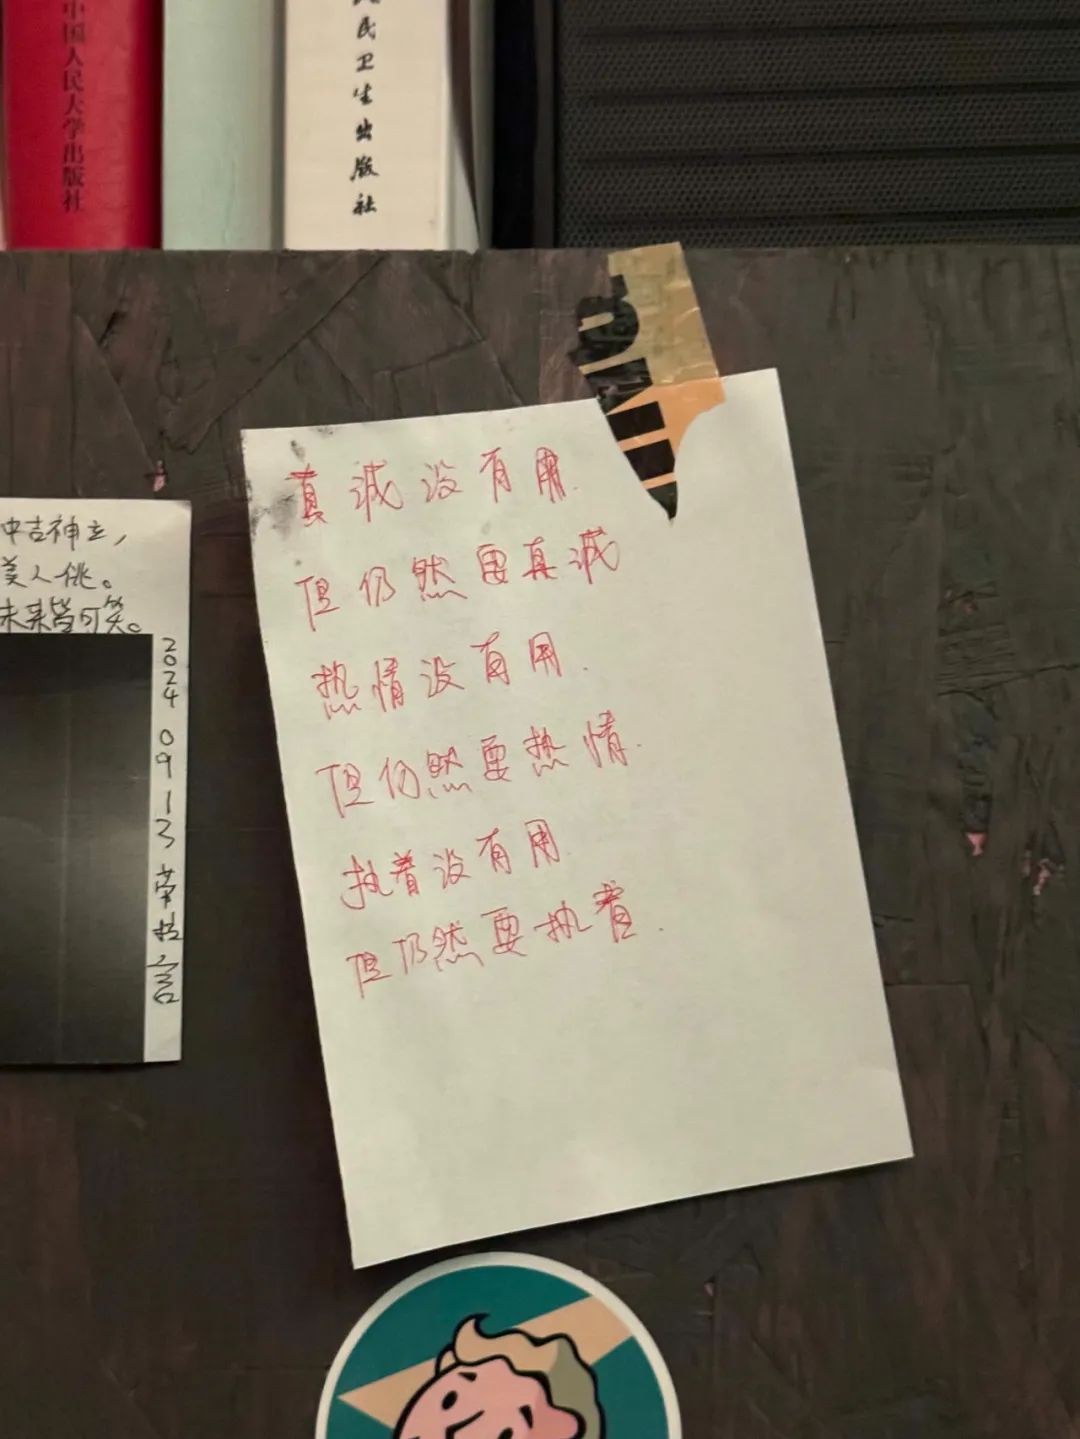 中国人民大学出版社
民卫生出版社
真诚没有用.
但仍然要真诚
热情没有用.
但仍然要热情.
执着没有用.
但仍然要执着.
中吉神立,
美人佻。
未来皆可笑。
2024 09 13